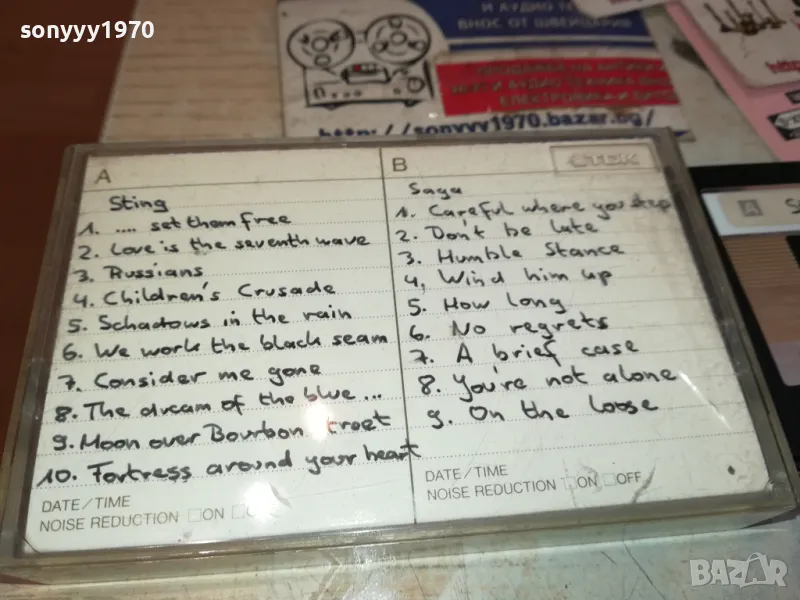 sonyyy1970
И АУДИО
ВНОС ОТ ШВЕЙЦАРИЯ
http://sonyyy1970.bazar.bg/
A
Sting
1. .... set them free
2. Love is the seventh wave
3. Russians
4. Children's Crusade
5. Schadows in the rain
6. We work the black seam
7. Consider me gone
8. The dream of the blue...
9. Moon over Bourbon treet
10. Fortress around your heart
DATE/TIME
NOISE REDUCTION □ON
B
TDK
Saga
1. Careful where you step
2. Don't be late
3. Humble Stance
4, Wind him up
5. How long
6. No regrets
7. A brief case
8. You're not alone
9. On the loose
DATE/TIME
NOISE REDUCTION □ON □OFF
A
BAZAR